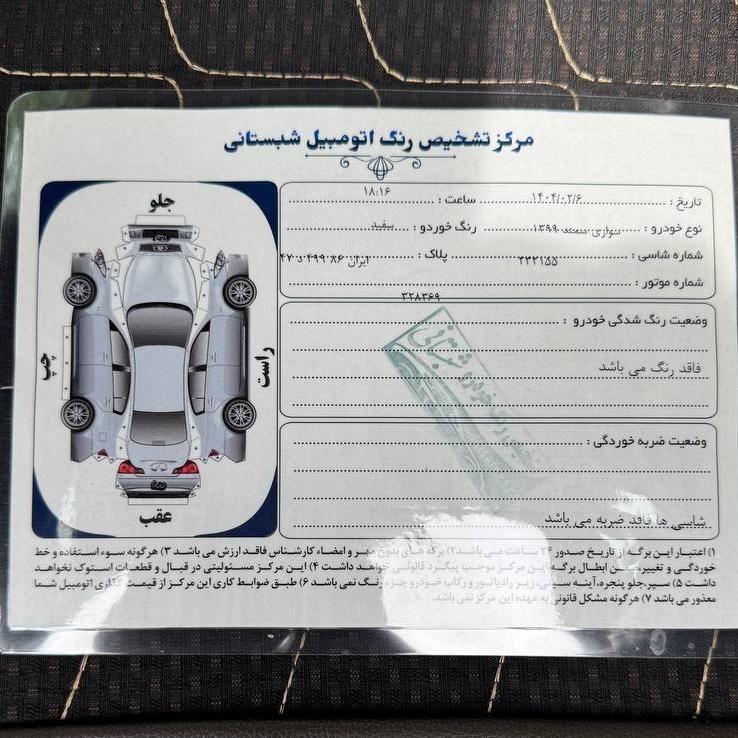 مرکز تشخیص رنگ اتومبیل شبستانی
تاریخ : ۱۴۰۴/۰۲/۶ ساعت : ۱۸:۱۶
نوع خودرو : سواری سمند ۱۳۹۹ رنگ خوردو : سفید
شماره شاسی : ۲۳۲۱۵۵ پلاک : ایران ۸۶ ۴۹۹ د ۴۷
شماره موتور :
۳۲۸۳۶۹
جلو
چپ
راست
عقب
وضعیت رنگ شدگی خودرو :
فاقد رنگ می باشد
وضعیت ضربه خوردگی :
شاسی ها فاقد ضربه می باشد
۱) اعتبار این برگه از تاریخ صدور ۲۴ ساعت می باشد ۲) برگه های بدون مهر و امضاء کارشناس فاقد ارزش می باشد ۳) هرگونه سوء استفاده و خط
خوردگی و تغییر در متن ابطال برگه این مرکز موجب پیگرد قانونی خواهد داشت ۴) این مرکز مسئولیتی در قبال و قطعات استوک نخواهد
داشت ۵) سپر، جلو پنجره، آینه سینی، زیر رادیاتور و رکاب خودرو جزء رنگ نمی باشد ۶) طبق ضوابط کاری این مرکز از قیمت گذاری اتومبیل شما
معذور می باشد ۷) هرگونه مشکل قانونی به عهده این مرکز نمی باشد.